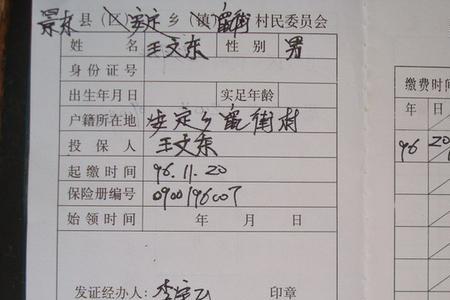 景东县(区)安定乡(镇)窎街村民委员会
姓名 王文东 性别 男
身份证号
出生年月日 实足年龄
户籍所在地 安定乡窎街村
投保人 王文东
起缴时间 96.11.20
保险册编号 0900196007
始领时间 年 月 日
发证经办人: 印章
缴费时间
年 日
96 20